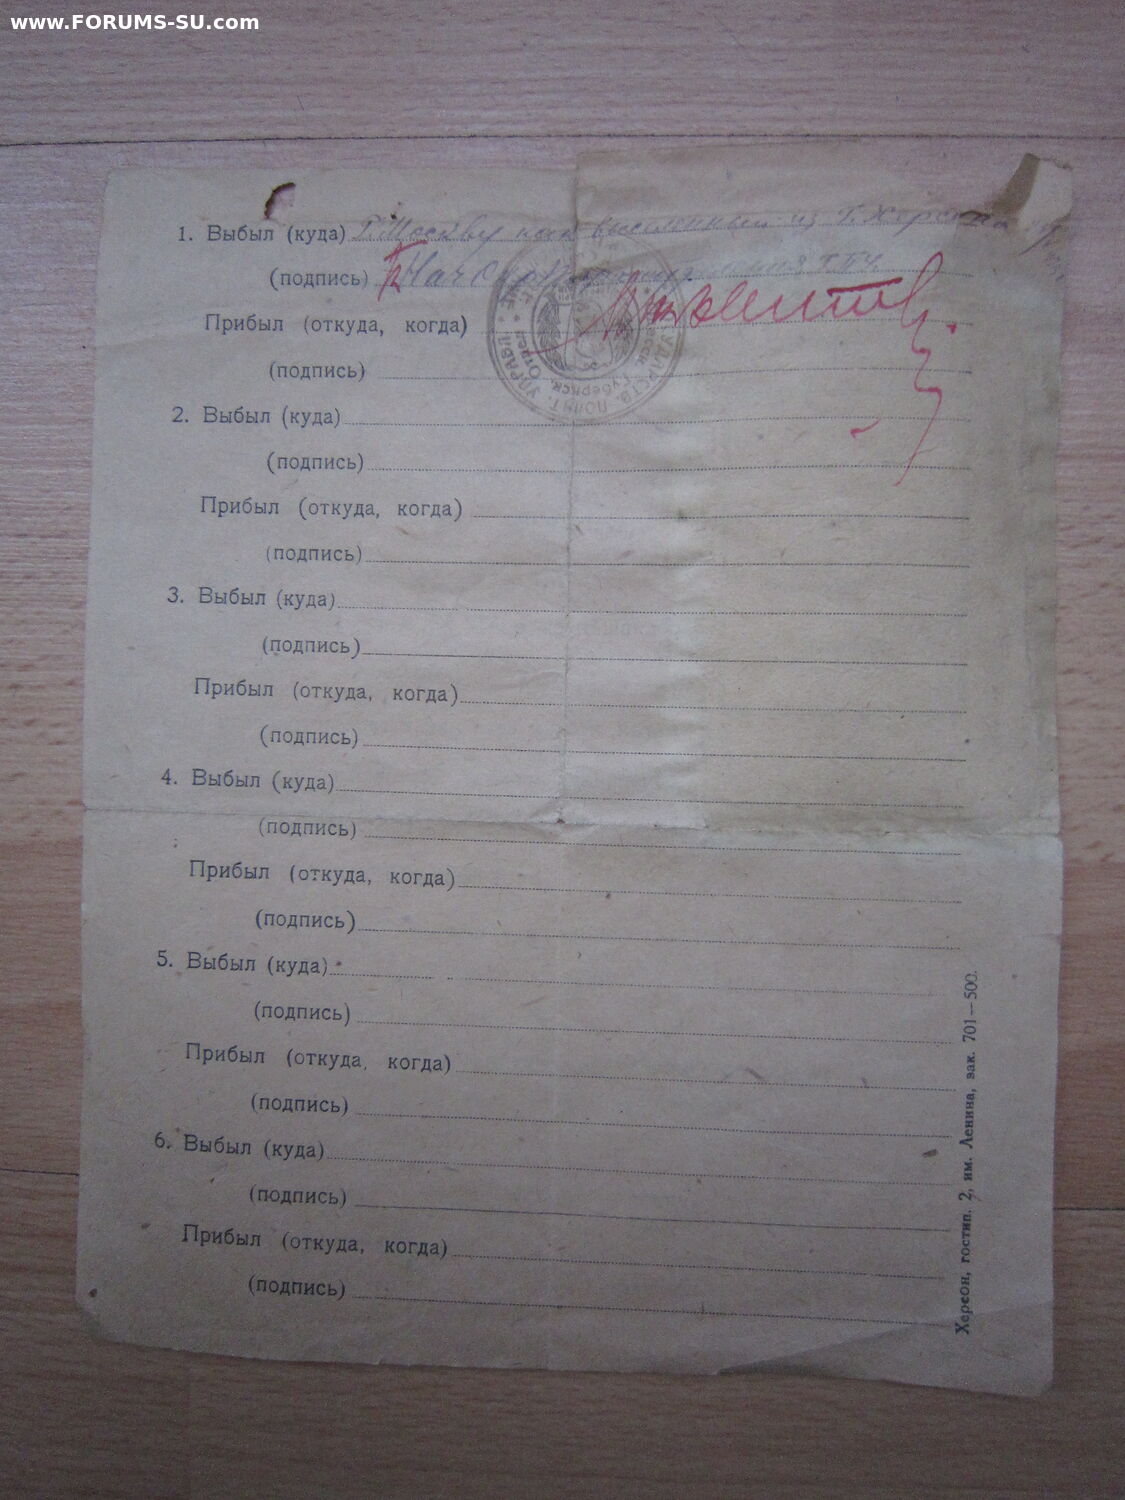 www.FORUMS-SU.com
1. Выбыл (куда) Г. Москву как высланный из Г. Херсона
(подпись) Нач
Прибыл (откуда, когда)
(подпись)
2. Выбыл (куда)
(подпись)
Прибыл (откуда, когда)
(подпись)
3. Выбыл (куда)
(подпись)
Прибыл (откуда, когда)
(подпись)
4. Выбыл (куда)
(подпись)
Прибыл (откуда, когда)
(подпись)
5. Выбыл (куда)
(подпись)
Прибыл (откуда, когда)
(подпись)
6. Выбыл (куда)
(подпись)
Прибыл (откуда, когда)
(подпись)
Херсон, гостип. 2, им. Ленина, зак. 701—500.